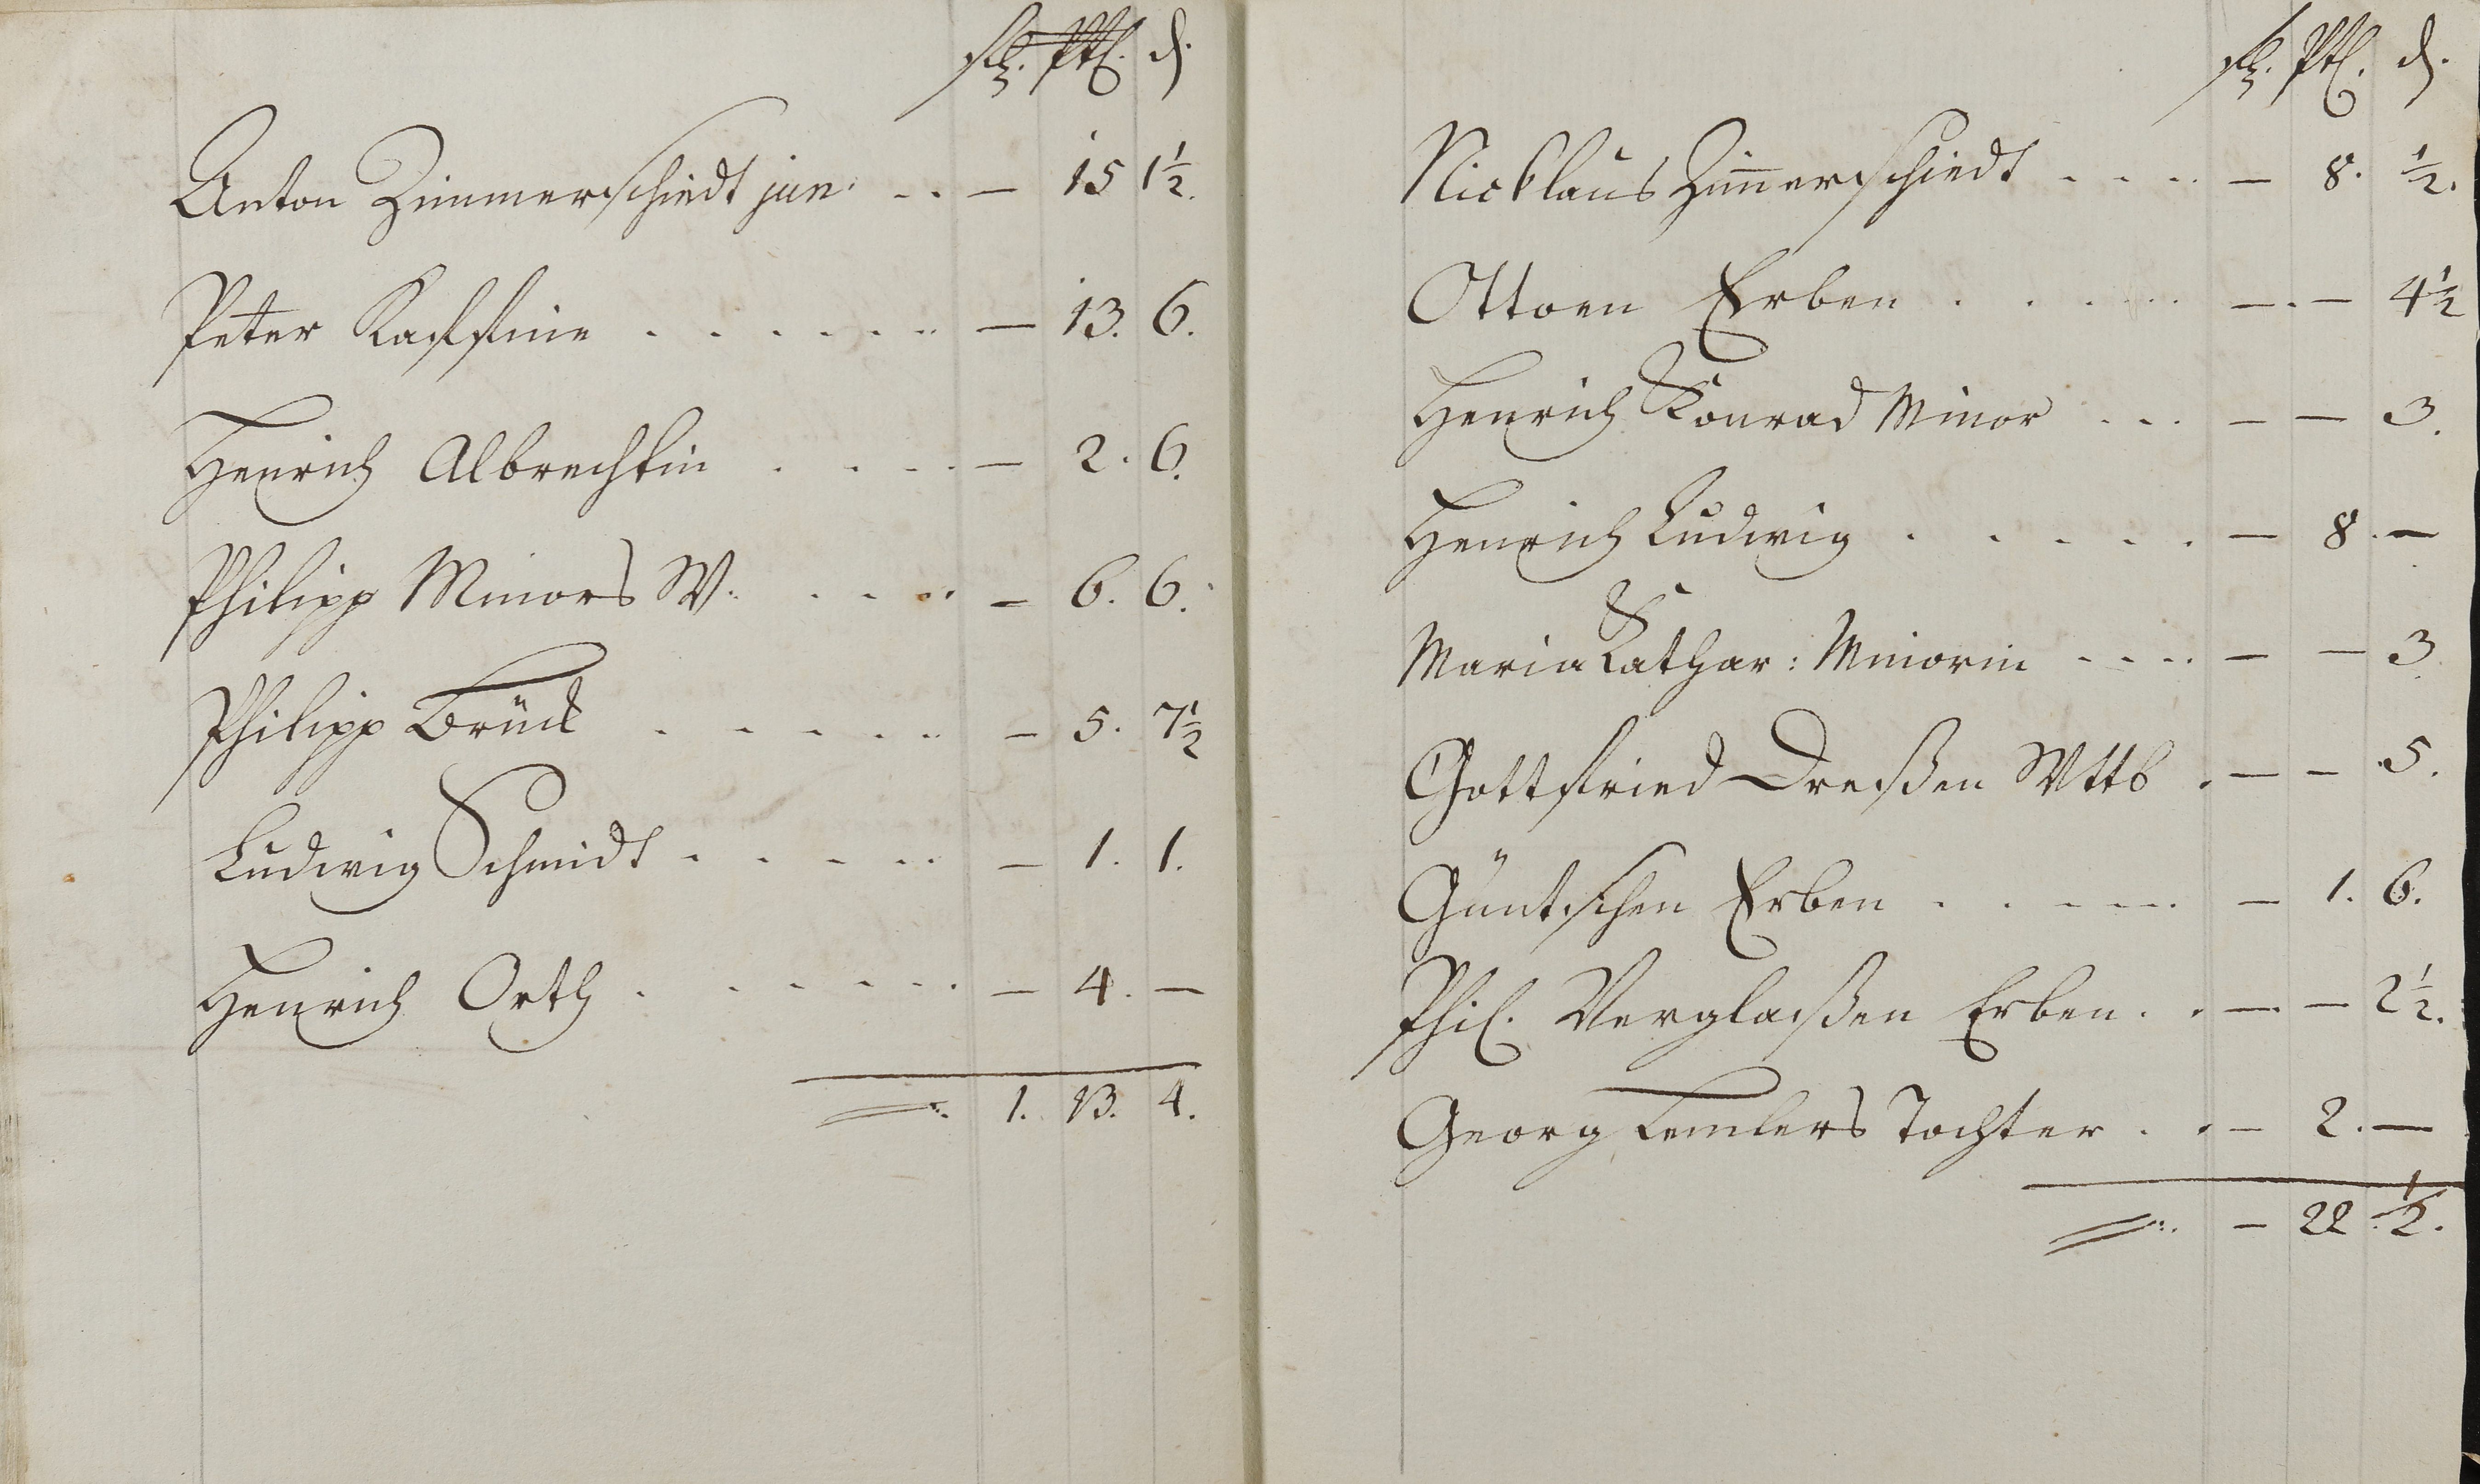 fl. Ptz. d.
Anton Zimmerschiedt jun. . . – 15 1½.
Peter Kaffine . . . . . . . . – 13. 6.
Henrich Albrechtin . . . . – 2. 6.
Philipp Minors W. . . . . – 6. 6.
Philipp Brück . . . . . . – 5. 7½
Ludwig Schmidt . . . . . – 1. 1.
Henrich Orth . . . . . . . – 4. –
1. 13. 4.
fl. Ptz. d.
Nicklaus Zimerschiedt . . . . – 8. ½.
Ottoen Erben . . . . . . – . – 4½
Henrich Konrad Minor . . . – – 3.
Henrich Ludwig . . . . . – 8. –
Maria Kathar: Minorin . . . . – – 3
Gottfried Dreßen Wttb . – – 5.
Güntschen Erben . . . . . . – 1. 6.
Phil. Verglaßen Erben . . – – 2½.
Georg Lemlers Tochter . . – 2. –
– 22. ½.